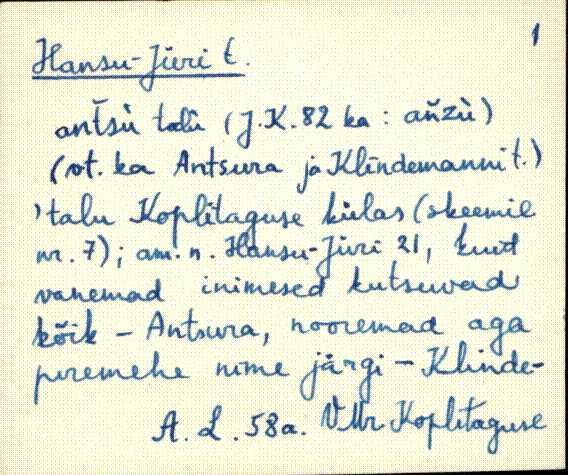 1
Hansu-Jüri t.
antsù talù (J.K. 82 ka : ańzù)
(vt. ka Antsura ja Klindemanni t.)
'talu Koplitaguse külas (skeemil
nr. 7); am. n. Hansu-Jüri 21, kuid
vanemad inimesed kutsuvad
kõik – Antsura, nooremad aga
peremehe nime järgi – Klinde-
A. L. 58a. VMr Koplitaguse